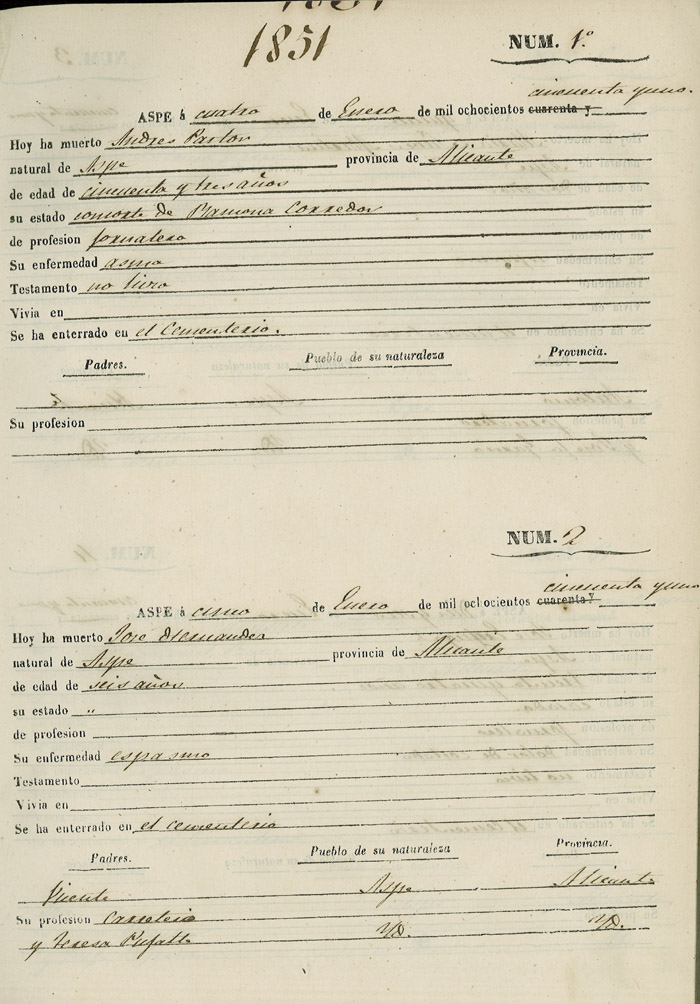 1851
NUM. 1º
cincuenta y uno.
ASPE á cuatro de Enero de mil ochocientos cuarenta y
Hoy ha muerto Andres Pastor
natural de Aspe provincia de Alicante
de edad de cincuenta y tres años
su estado consorte de Ramona Corredor
de profesion jornalero
Su enfermedad asma
Testamento no hizo
Vivia en
Se ha enterrado en el Cementerio.
Padres. Pueblo de su naturaleza Provincia.
Su profesion
NUM. 2
cincuenta y uno
ASPE á cinco de Enero de mil ochocientos cuarenta y
Hoy ha muerto Jose Hernandez
natural de Aspe provincia de Alicante
de edad de seis años
su estado "
de profesion
Su enfermedad espasmo
Testamento
Vivia en
Se ha enterrado en el cementerio
Padres. Pueblo de su naturaleza Provincia.
Vicente Aspe Alicante
Su profesion carretero
y Teresa Yd. Yd.